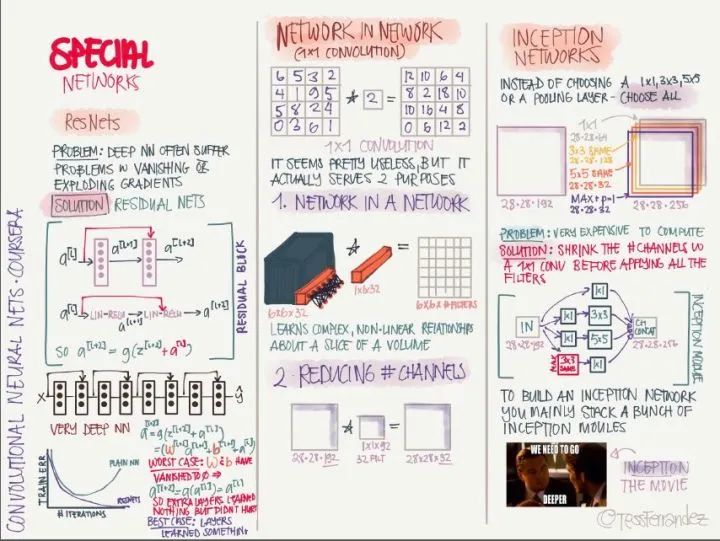 SPECIAL
NETWORKS
ResNets
PROBLEM: DEEP NN OFTEN SUFFER
PROBLEMS W VANISHING OR
EXPLODING GRADIENTS
SOLUTION: RESIDUAL NETS
a[l] a[l+1] a[l+2]
a[l] LIN-RELU LIN-RELU a[l+2]
a[l+1]
SO a[l+2] = g(z[l+2] + a[l])
RESIDUAL BLOCK
X ŷ
VERY DEEP NN
a[l+2] = g(z[l+2] + a[l])
WORST CASE: W & b HAVE
VANISHED TO 0 ⇒
a[l+2] = g(a[l]) = a[l]
SO EXTRA LAYERS LEARNED
NOTHING BUT DIDNT HURT
BEST CASE: LAYERS
LEARNED SOMETHING
TRAIN ERR
PLAIN NN
RESNETS
# ITERATIONS
CONVOLUTIONAL NEURAL NETS · COURSERA
NETWORK IN NETWORK
(1x1 CONVOLUTION)
6 5 3 2
4 1 9 5
5 8 2 4
0 3 6 1
* 2 =
12 10 6 4
8 2 18 10
10 16 4 8
0 6 12 2
1x1 CONVOLUTION
IT SEEMS PRETTY USELESS, BUT IT
ACTUALLY SERVES 2 PURPOSES
1. NETWORK IN A NETWORK
* =
6x6x32
1x1x32
6x6x#FILTERS
LEARNS COMPLEX, NON-LINEAR RELATIONSHIPS
ABOUT A SLICE OF A VOLUME
2. REDUCING # CHANNELS
* =
28·28·192
1x1x192
32 FILT
28x28x32
INCEPTION
NETWORKS
INSTEAD OF CHOOSING A 1x1, 3x3, 5x5
OR A POOLING LAYER - CHOOSE ALL
28·28·192
1x1
28·28·64
3x3 SAME
28·28·128
5x5 SAME
28·28·32
MAX+P=1
28·28·32
28·28·256
PROBLEM: VERY EXPENSIVE TO COMPUTE
SOLUTION: SHRINK THE #CHANNELS W
A 1x1 CONV BEFORE APPLYING ALL THE
FILTERS
IN
28·28·192
1x1
1x1 3x3
1x1 5x5
MAX 3x3 SAME 1x1
CH CONCAT
28·28·256
INCEPTION MODULE
TO BUILD AN INCEPTION NETWORK
YOU MAINLY STACK A BUNCH OF
INCEPTION MOULES
WE NEED TO GO
DEEPER
INCEPTION
THE MOVIE
@TessFerrandez